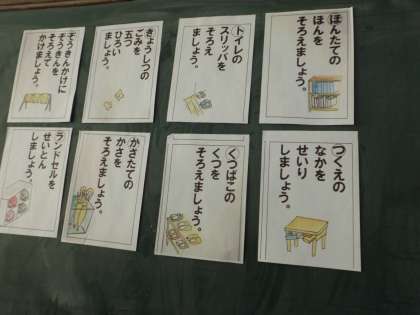 ほんたての
ほんを
そろえましょう。
トイレの
スリッパを
そろえ
ましょう。
きょうしつの
ごみを
五つ
ひろい
ましょう。
ぞうきんかけに
ぞうきんを
そろえて
かけましょう。
つくえの
なかを
せいり
しましょう。
くつばこの
くつを
そろえましょう。
かさたての
かさを
そろえましょう。
ランドセルを
せいとん
しましょう。